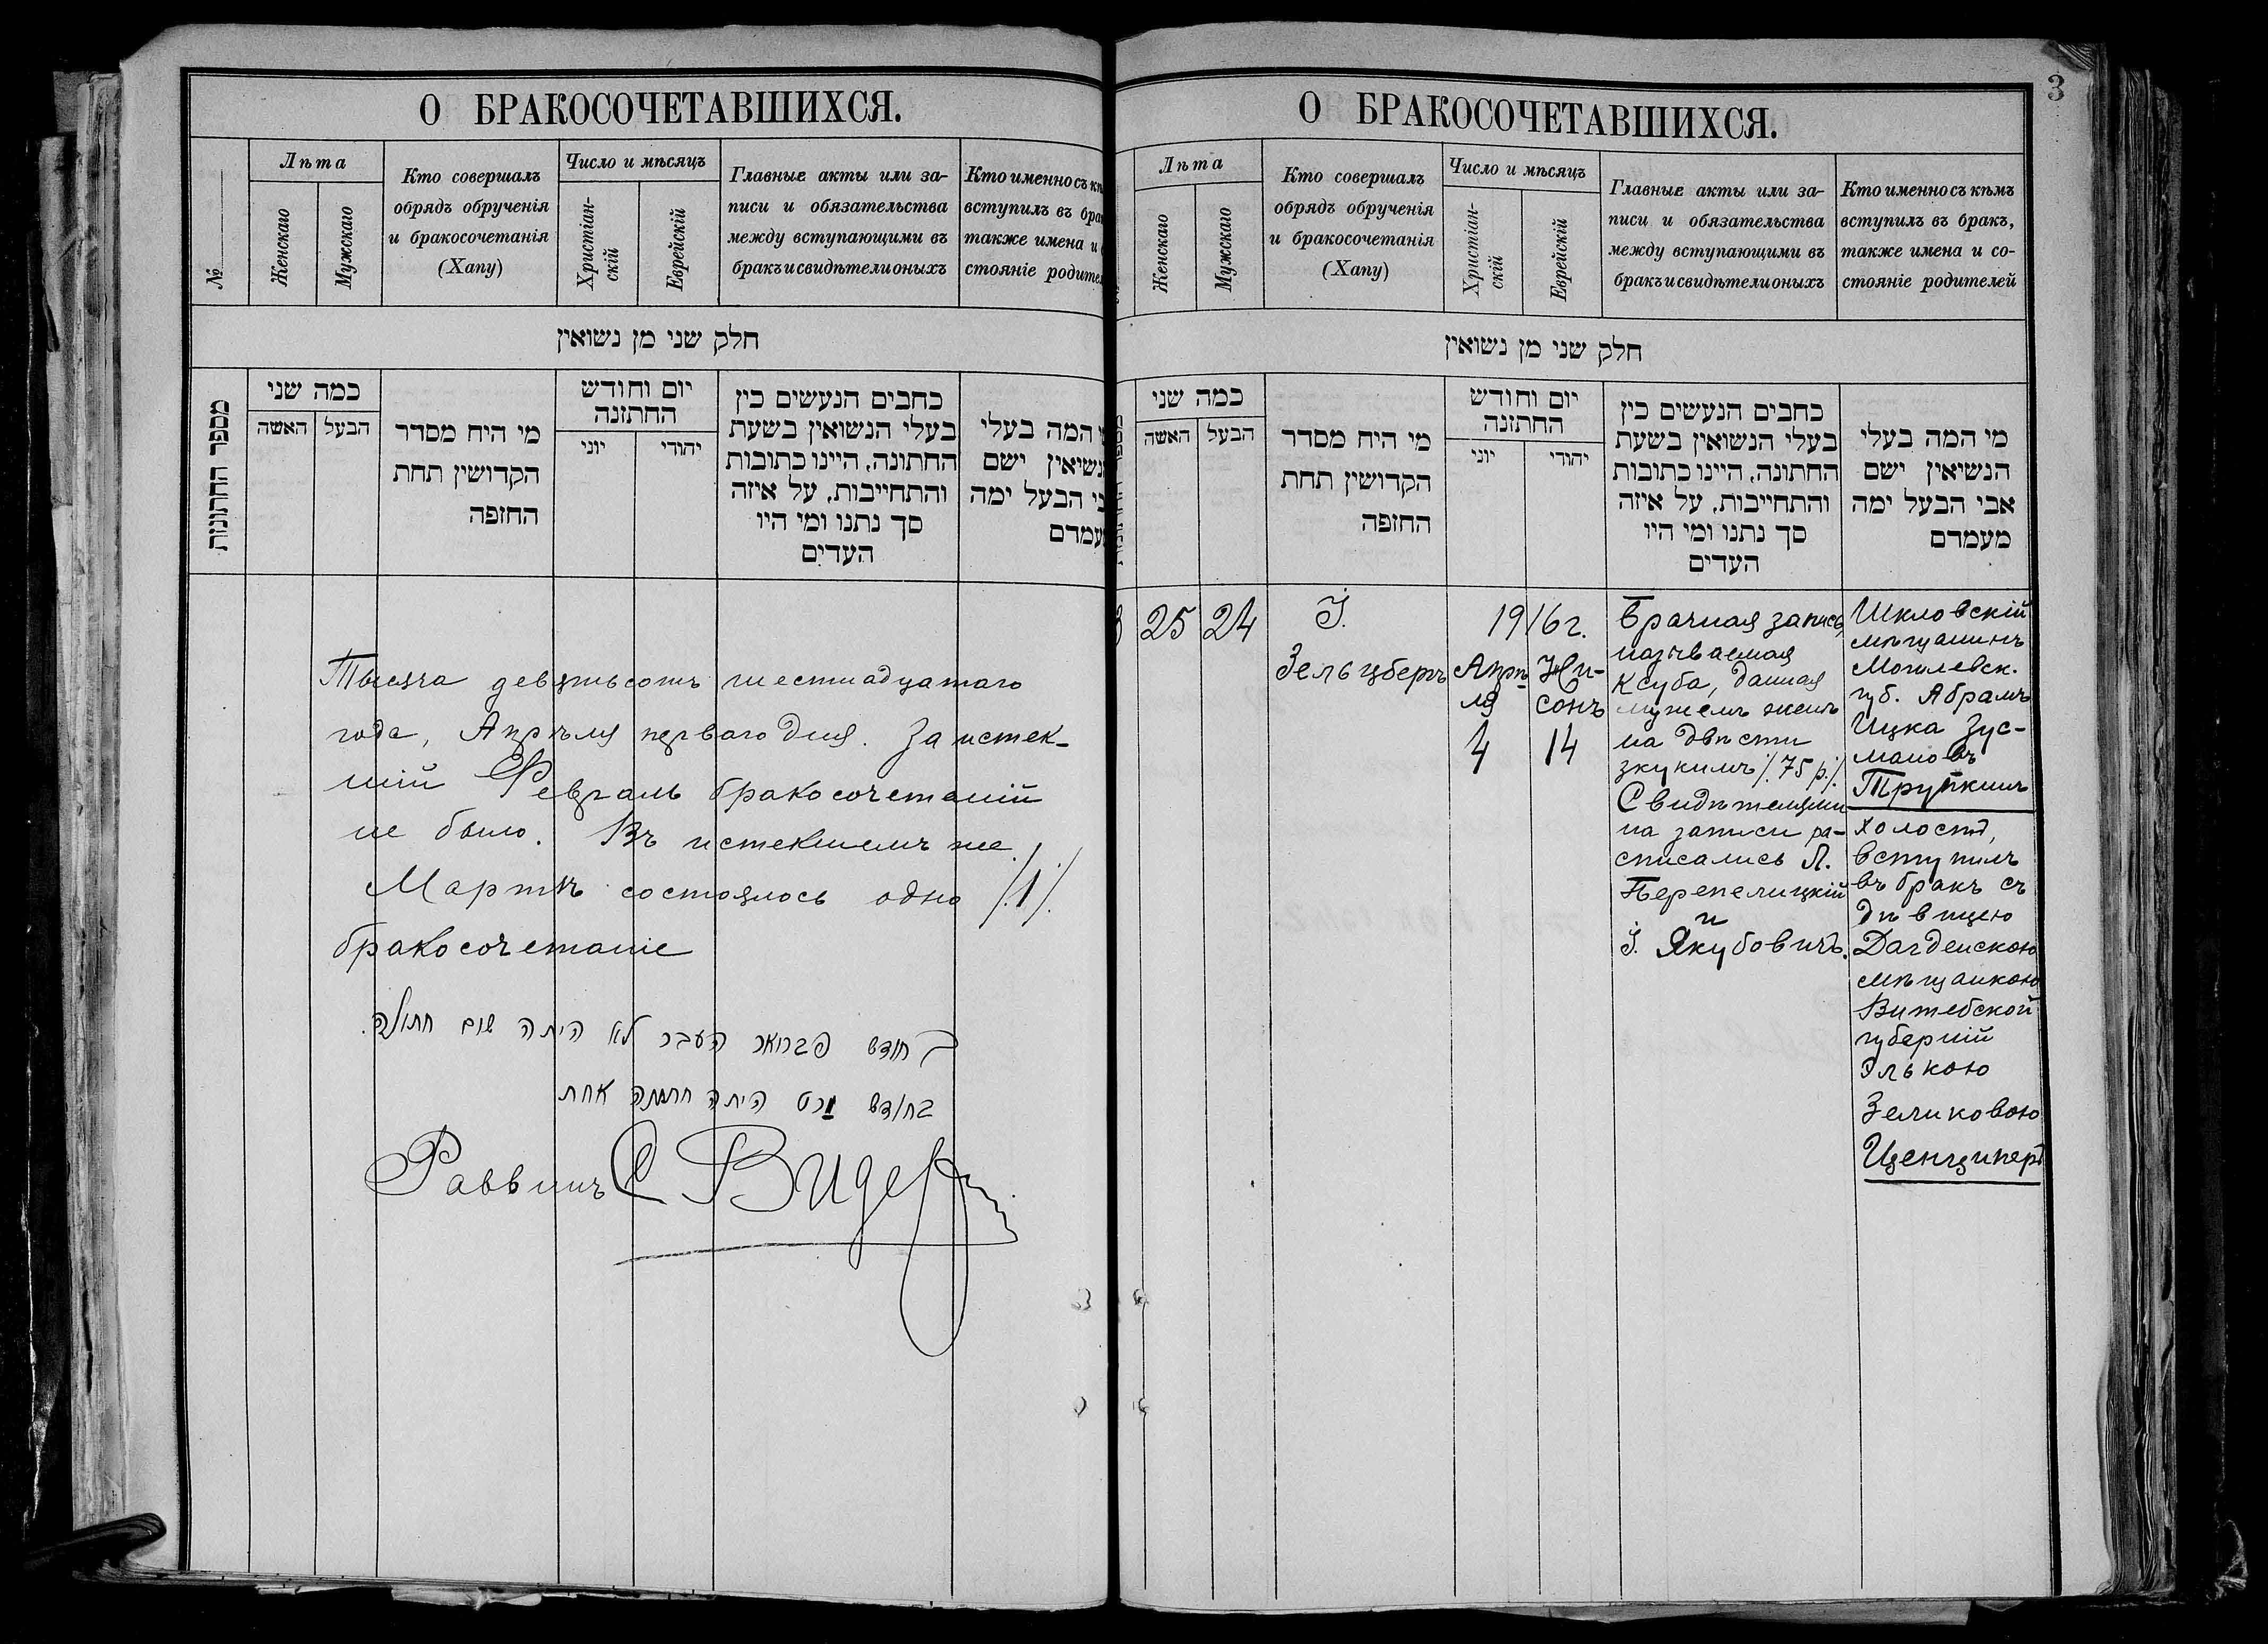 О БРАКОСОЧЕТАВШИХСЯ.
№
Лѣта
Женскаго
Мужскаго
Кто совершалъ
обрядъ обрученія
и бракосочетанія
(Хапу)
Число и мѣсяцъ
Христіан-
скій
Еврейскій
Главные акты или за-
писи и обязательства
между вступающими въ
бракъ и свидѣтели оныхъ
Кто именно съ
вступилъ въ
также имена и
стояніе
חלק שני מן נשואין
מספר החתונות
כמה שני
האשה
הבעל
מי היח מסדר
הקדושין תחת
החזפה
יום וחודש
החתזנה
יוני
יהודי
כחבים הנעשים כין
בעלי הנשואין בשעת
החתונה, היינו כתובות
והתחייבות, על איזה
סך נתנו ומי היו
העדים
המה בעלי
ישם
הבעל ימה
Тысяча девятьсотъ шестнадцатаго
года, Апрѣля перваго дня. За истек-
шій Февраль бракосочетаній
не было. Въ истекшемъ же
Мартѣ состоялось одно /.1/.
бракосочетаніе
בחודש פברואר העבר לא היתה שום חתונה.
בחודש מרט היתה חתונה אחת
Раввинъ С Видер
3
О БРАКОСОЧЕТАВШИХСЯ.
Лѣта
Женскаго
Мужскаго
Кто совершалъ
обрядъ обрученія
и бракосочетанія
(Хапу)
Число и мѣсяцъ
Христіан-
скій
Еврейскій
Главные акты или за-
писи и обязательства
между вступающими въ
бракъ и свидѣтели оныхъ
Кто именно съ кѣмъ
вступилъ въ бракъ,
также имена и со-
стояніе родителей
חלק שני מן נשואין
כמה שני
האשה
הבעל
מי היח מסדר
הקדושין תחת
החזפה
יום וחודש
החתזנה
יוני
יהודי
כחבים הנעשים כין
בעלי הנשואין בשעת
החתונה, היינו כתובות
והתחייבות, על איזה
סך נתנו ומי היו
העדים
מי המה בעלי
הנשיאין ישם
אבי הבעל ימה
מעמדם
3
25
24
І.
Зельцберъ
1916 г.
Апрѣ-
ля
4
Ни-
сонъ
14
Брачная запись,
называемая
Ксуба, данная
мужемъ женѣ
на двѣсти
зкукимъ /.75 р./.
Свидѣтелями
на записи ра-
списались Л.
Перепелицкій
и
І. Якубовичъ.
Шкловскій
мѣщанинъ
Могилевск.
губ. Абрамъ
Ицка Зус-
мановъ
Трупкинъ
холостъ,
вступилъ
въ бракъ съ
дѣвицею
Дагденскою
мѣщанкою
Витебской
губерніи
Элькою
Зеликовою
Ценциперъ